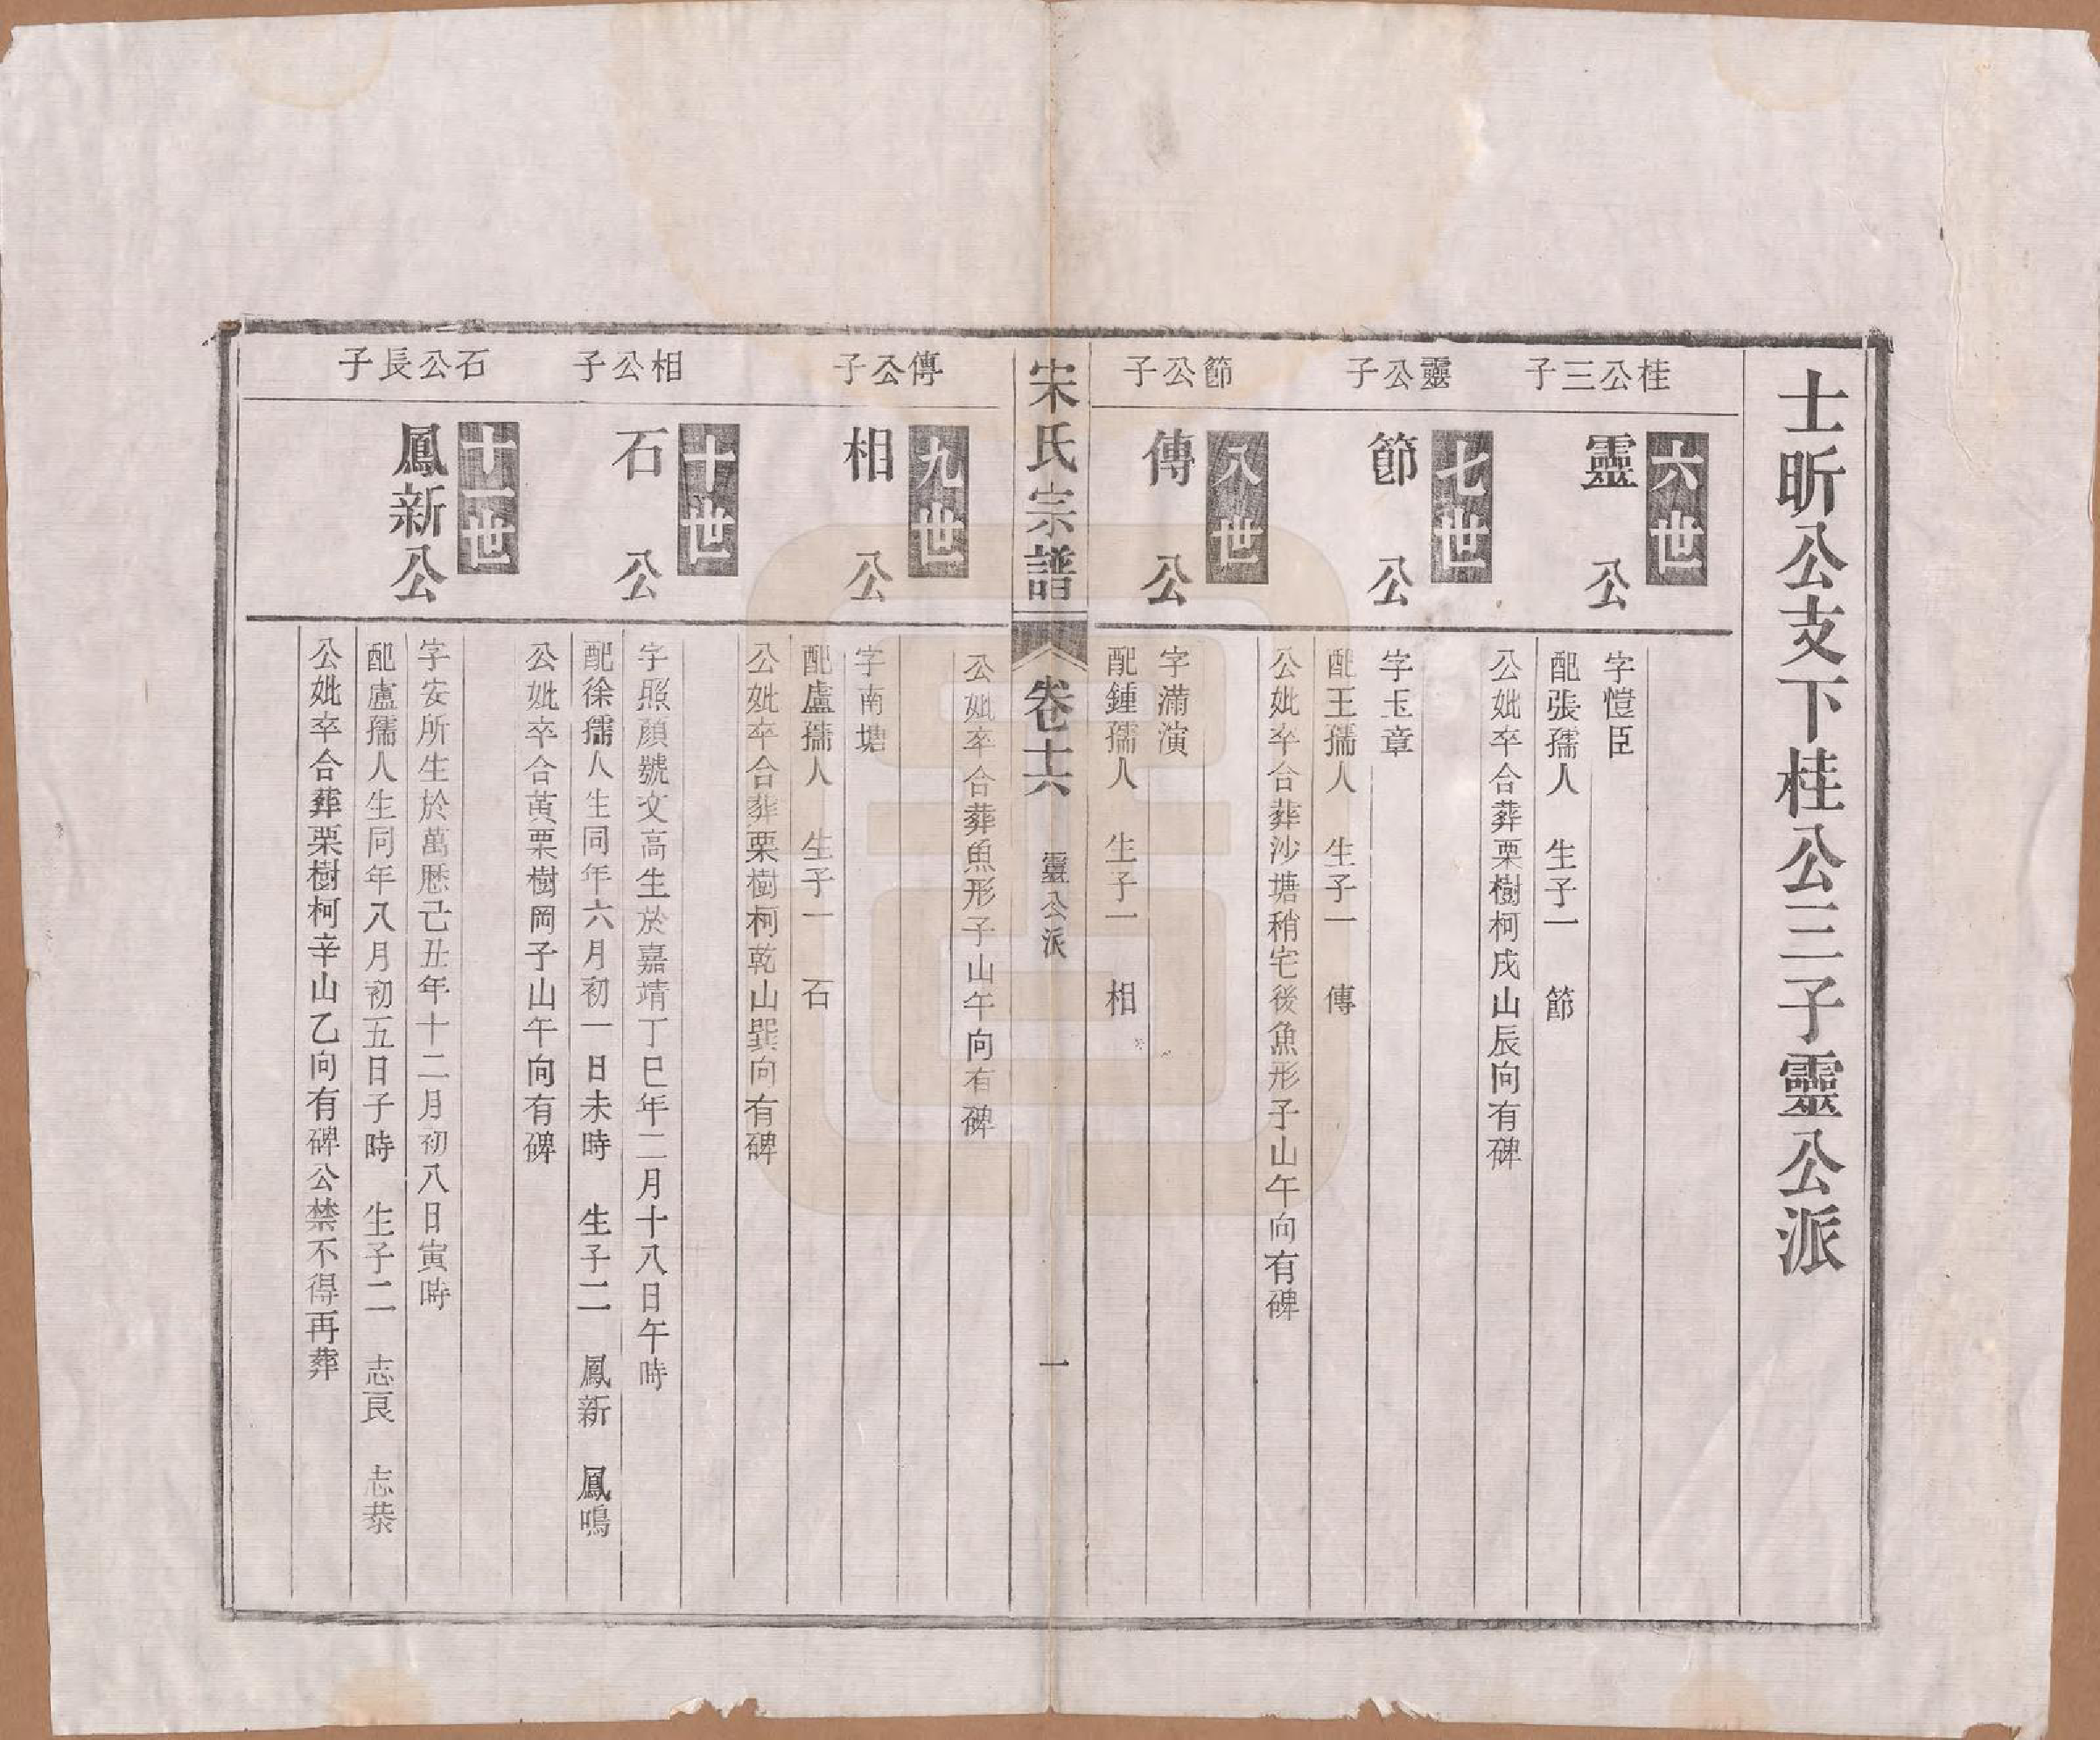 士昕公支下桂公三子靈公派
桂公三子
六世
靈公
字愷臣
配張孺人 生子一 節
公妣卒合葬栗樹柯戌山辰向有碑
靈公子
七世
節公
字玉章
配王孺人 生子一 傳
公妣卒合葬沙塘稍宅後魚形子山午向有碑
節公子
八世
傳公
字滿演
配鍾孺人 生子一 相
宋氏宗譜 卷十六 靈公派 一
公妣卒合葬魚形子山午向有碑
傳公子
九世
相公
字南塘
配盧孺人 生子一 石
公妣卒合葬栗樹柯乾山巽向有碑
相公子
十世
石公
字照顏號文高生於嘉靖丁巳年二月十八日午時
配徐孺人生同年六月初一日未時 生子二 鳳新 鳳鳴
公妣卒合黃栗樹岡子山午向有碑
石公長子
十一世
鳳新公
字安所生於萬歷己丑年十二月初八日寅時
配盧孺人生同年八月初五日子時 生子二 志良 志恭
公妣卒合葬栗樹柯辛山乙向有碑公禁不得再葬